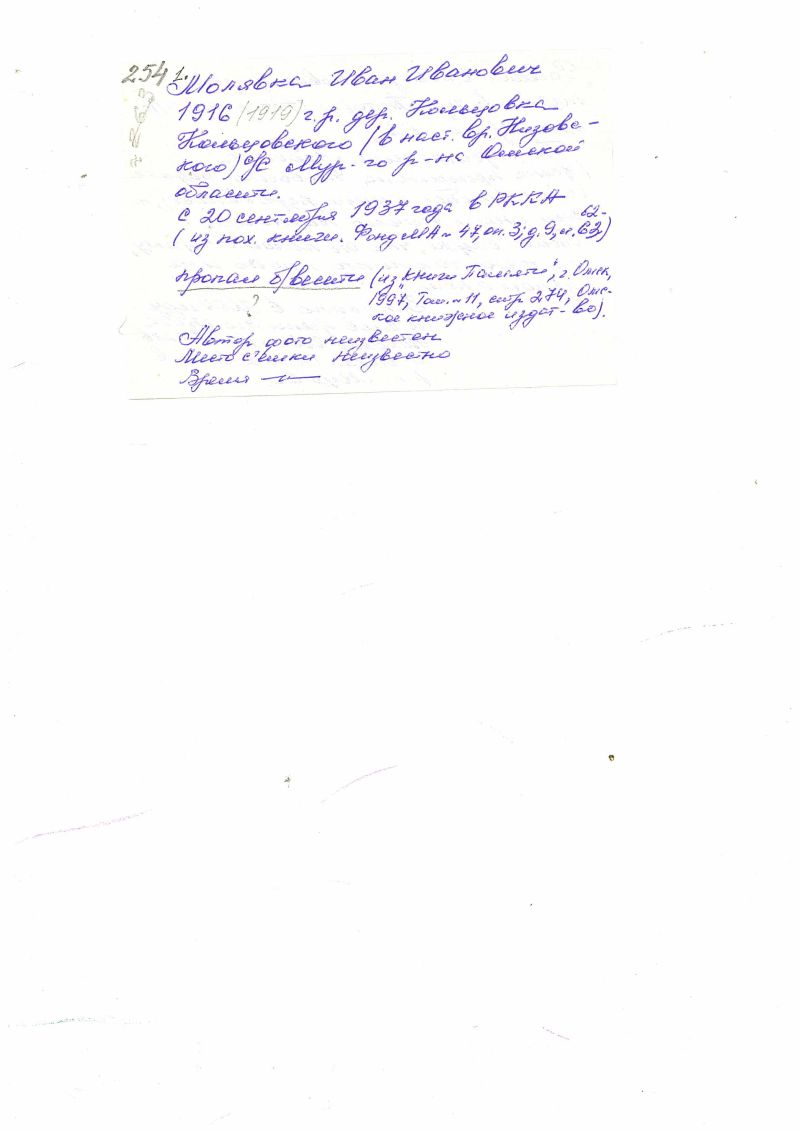 254 1. Молявка Иван Иванович
1916 (1919) г.р. дер. Кольцовка
Кольцовского (в наст. вр. Низове-
кого) с/с Мур-го р-на Омской
области.
С 20 сентября 1937 года в РККА
(из пох. книги. Фонд МА-47, оп. 3, д. 9, л. 62-63)
пропал б/вести (из "Книги Памяти", г. Омск,
1997, Том-11, стр. 274, Омс-
кое книжное издат-во).
?
Автор фото неизвестен
Место съёмки неизвестно
Время —"—